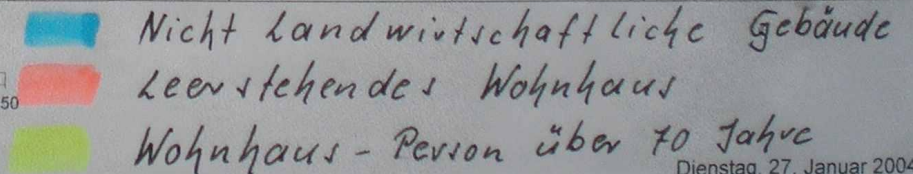 Nicht Landwirtschaftliche Gebäude
Leerstehendes Wohnhaus
50
Wohnhaus - Person über 70 Jahre
Dienstag, 27. Januar 2004